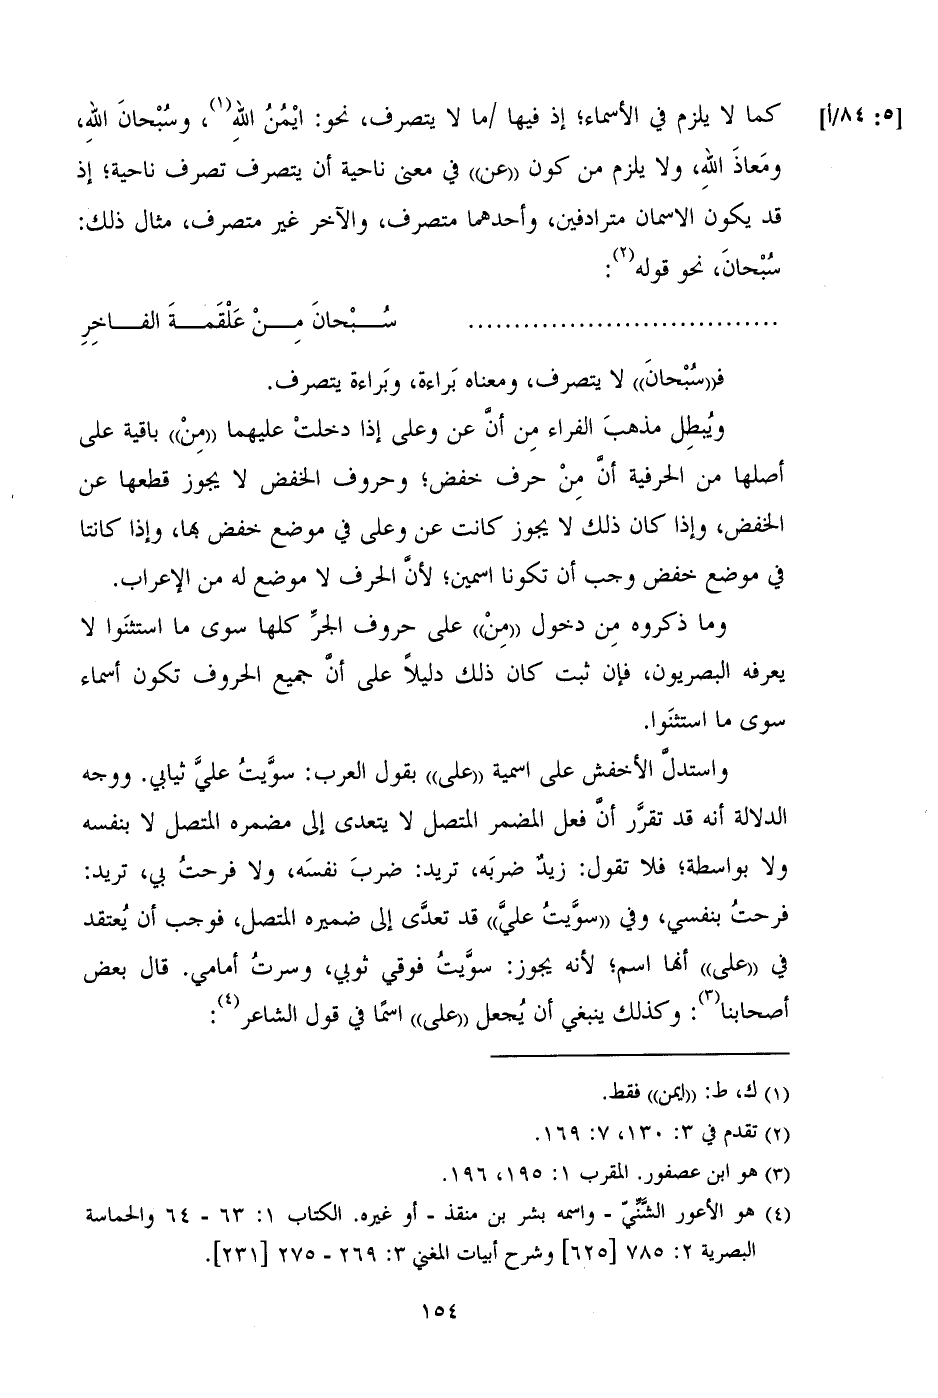 [٥: ٨٤/أ] كما لا يلزم في الأسماء؛ إذ فيها /ما لا يتصرف، نحو: ايْمُنُ اللهِ(١)، وسُبْحانَ اللهِ،
ومَعاذَ اللهِ، ولا يلزم من كون ((عن)) في معنى ناحية أن يتصرف تصرف ناحية؛ إذ
قد يكون الاسمان مترادفين، وأحدهما متصرف، والآخر غير متصرف، مثال ذلك:
سُبْحانَ، نحو قوله(٢):
................................. سُـبْحانَ مِـنْ عَلْقَمـةَ الفـاخِرِ
فـ((سُبْحانَ)) لا يتصرف، ومعناه بَراءة، وبَراءة يتصرف.
ويُبطِل مذهبَ الفراء مِن أنَّ عن وعلى إذا دخلتْ عليهما ((مِنْ)) باقية على
أصلها من الحرفية أنَّ مِنْ حرف خفض؛ وحروف الخفض لا يجوز قطعها عن
الخفض، وإذا كان ذلك لا يجوز كانت عن وعلى في موضع خفض بها، وإذا كانتا
في موضع خفض وجب أن تكونا اسمين؛ لأنَّ الحرف لا موضع له من الإعراب.
وما ذكروه مِن دخول ((مِنْ)) على حروف الجرِّ كلها سوى ما استثنَوا لا
يعرفه البصريون، فإن ثبت كان ذلك دليلاً على أنَّ جميع الحروف تكون أسماء
سوى ما استثنَوا.
واستدلَّ الأخفش على اسمية ((على)) بقول العرب: سوَّيتُ عليَّ ثيابي. ووجه
الدلالة أنه قد تقرَّر أنَّ فعل المضمر المتصل لا يتعدى إلى مضمره المتصل لا بنفسه
ولا بواسطة؛ فلا تقول: زيدٌ ضربَه، تريد: ضربَ نفسَه، ولا فرحتُ بي، تريد:
فرحتُ بنفسي، وفي ((سوَّيتُ عليَّ)) قد تعدَّى إلى ضميره المتصل، فوجب أن يُعتقد
في ((على)) أنها اسم؛ لأنه يجوز: سوَّيتُ فوقي ثوبي، وسرتُ أمامي. قال بعض
أصحابنا(٣): وكذلك ينبغي أن يُجعل ((على)) اسمًا في قول الشاعر(٤):
(١) ك، ط: ((ايمن)) فقط.
(٢) تقدم في ٣: ١٣٠، ٧: ١٦٩.
(٣) هو ابن عصفور. المقرب ١: ١٩٥، ١٩٦.
(٤) هو الأعور الشَّنِّيّ - واسمه بشر بن منقذ - أو غيره. الكتاب ١: ٦٣ - ٦٤ والحماسة
البصرية ٢: ٧٨٥ [٦٢٥] وشرح أبيات المغني ٣: ٢٦٩ - ٢٧٥ [٢٣١].
١٥٤